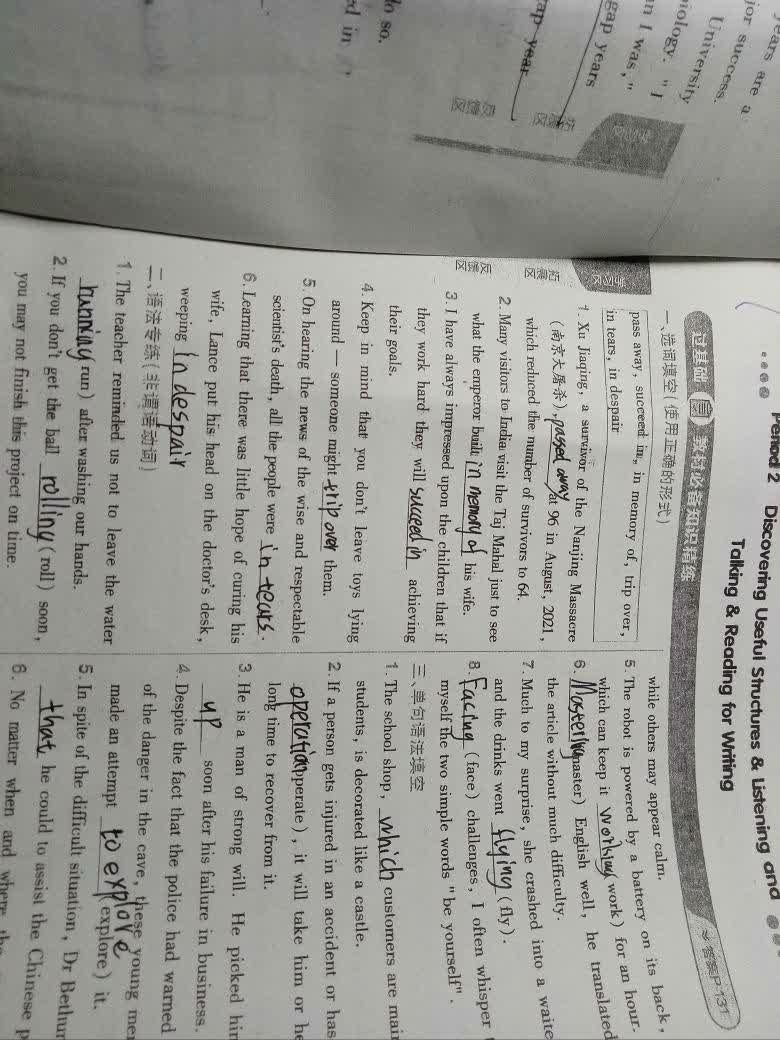 ears are a
jor success.
University
niology. "I
n I was,"
gap years
ap year
do so.
ed in
拓展区
反馈区
Period 2 Discovering Useful Structures & Listening and
Talking & Reading for Writing
过基础 教材必备知识精练
答案P-131
学习区
拓展区
反馈区
一、选词填空(使用正确的形式)
pass away, succeed in, in memory of, trip over,
in tears, in despair
1. Xu Jiaqing, a survivor of the Nanjing Massacre
(南京大屠杀), passed away at 96 in August, 2021,
which reduced the number of survivors to 64.
2. Many visitors to India visit the Taj Mahal just to see
what the emperor built in memory of his wife.
3. I have always impressed upon the children that if
they work hard they will succeed in achieving
their goals.
4. Keep in mind that you don't leave toys lying
around someone might trip over them.
5. On hearing the news of the wise and respectable
scientist's death, all the people were in tears.
6. Learning that there was little hope of curing his
wife, Lance put his head on the doctor's desk,
weeping in despair
二、语法专练(非谓语动词)
1. The teacher reminded us not to leave the water
running run) after washing our hands.
2. If you don't get the ball rolling (roll) soon,
you may not finish this project on time.
while others may appear calm.
5. The robot is powered by a battery on its back,
which can keep it working work) for an hour.
6. Mastering master) English well, he translated
the article without much difficulty.
7. Much to my surprise, she crashed into a waite
and the drinks went flying (fly).
8. Facing (face) challenges, I often whisper
myself the two simple words "be yourself".
三、单句语法填空
1. The school shop, which customers are mai
students, is decorated like a castle.
2. If a person gets injured in an accident or has
operation perate), it will take him or he
long time to recover from it.
3. He is a man of strong will. He picked hir
up soon after his failure in business.
4. Despite the fact that the police had warned
of the danger in the cave, these young me
made an attempt to explore (explore) it.
5. In spite of the difficult situation, Dr Bethur
that he could to assist the Chinese p
6. No matter when and where the